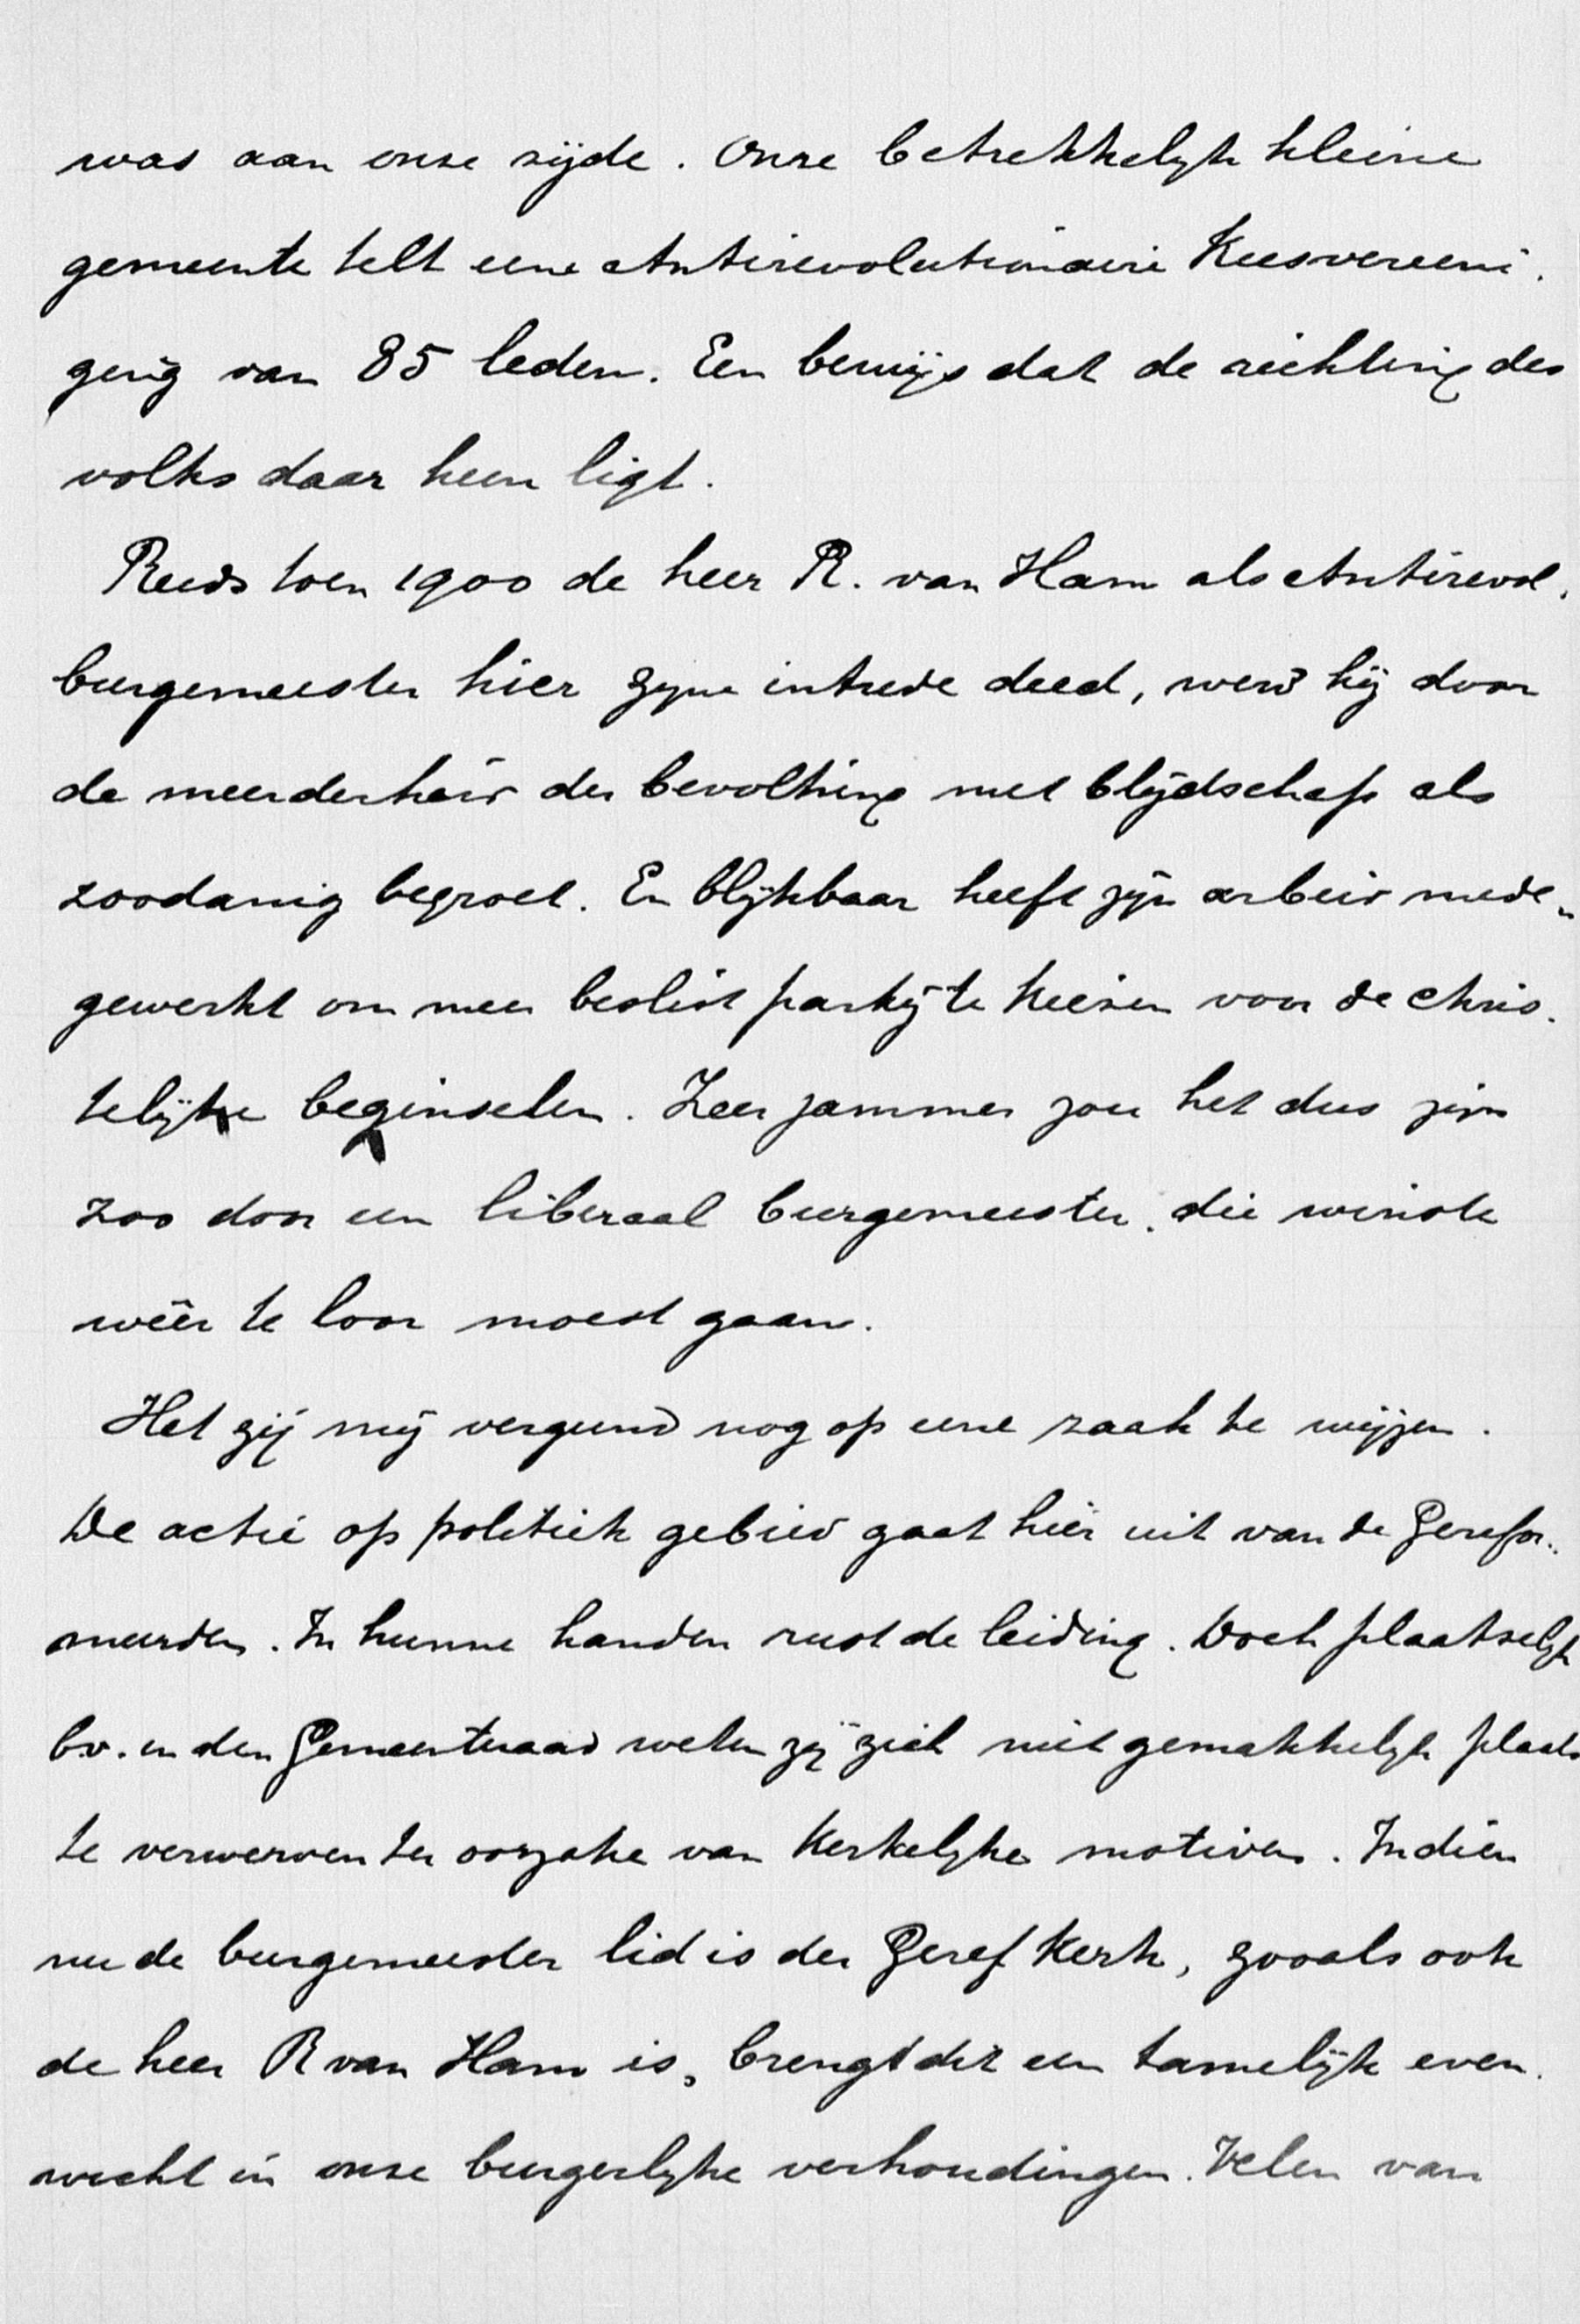 was aan onze zijde. Onze betrekkelijk kleine
gemeente telt eene Antirevolutionaire Kiesvereeni-
ging van 85 leden. Een bewijs dat de richting des
volks daar heen ligt.
Reeds toen 1900 de heer R. van Ham als Antirevol.
burgemeester hier zijne intrede deed, werd hij door
de meerderheid der bevolking met blijdschap als
zoodanig begroet. En blijkbaar heeft zijn arbeid mede-
gewerkt om meer beslist partij te kiezen voor de chris-
telijke beginselen. Zeer jammer zou het dus zijn
zoo door een liberaal burgemeester. die winste
wêer te loor moest gaan.
Het zij mij vergund nog op eene zaak te wijzen.
De actie op politiek gebied gaat hier uit van de Gerefor-
meerden. In hunne handen rust de leiding. Doch plaatselijk
bv. in den Gemeenteraad weten zij zich niet gemakkelijk plaats
te verwerven ter oorzake van Kerkelijke motiven. Indien
nu de burgemeester lid is der Geref Kerk, zooals ook
de heer R van Ham is, brengt dit een tamelijk even-
wicht in onze burgerlijke verhoudingen. Velen van